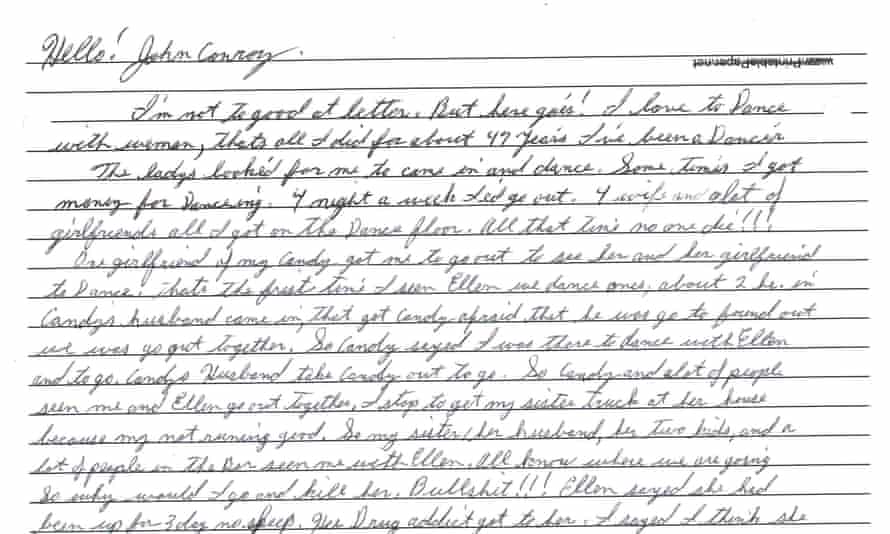 Hello! John Conroy.
www.PrintablePaper.net
I'm not to good at letter. But here goes! I love to Dance
with woman, thats all I did for about 47 years I've been a Dancer
The ladys looked for me to came in and dance. Some times I got
money for Danceing. 4 night a week I'd go out. 4 wife and alot of
girlfriends all I got on the Dance floor. All that time no one die!!!
One girlfriend of my Candy got me to go out to see her and her girlfriend
to Dance. Thats the frist time I seen Ellen we dance ones. about 2 hr. in
Candy's husband came in, that got Candy afraid that he was go to found out
we was go out together. So Candy sayed I was there to dance with Ellen
and to go. Candys Husband take Candy out to go. So Candy and alot of people
seen me and Ellen go out together, I stop to get my sister truck at her house
because my not runing good. So my sister, her husband, her two kids, and a
lot of people in the Bar seen me with Ellen. All know where we are going
So why would I go and kill her. Bullshit!!! Ellen sayed she had
been up for 3 day no sleep. Her Drug addict got to her. I sayed I think she